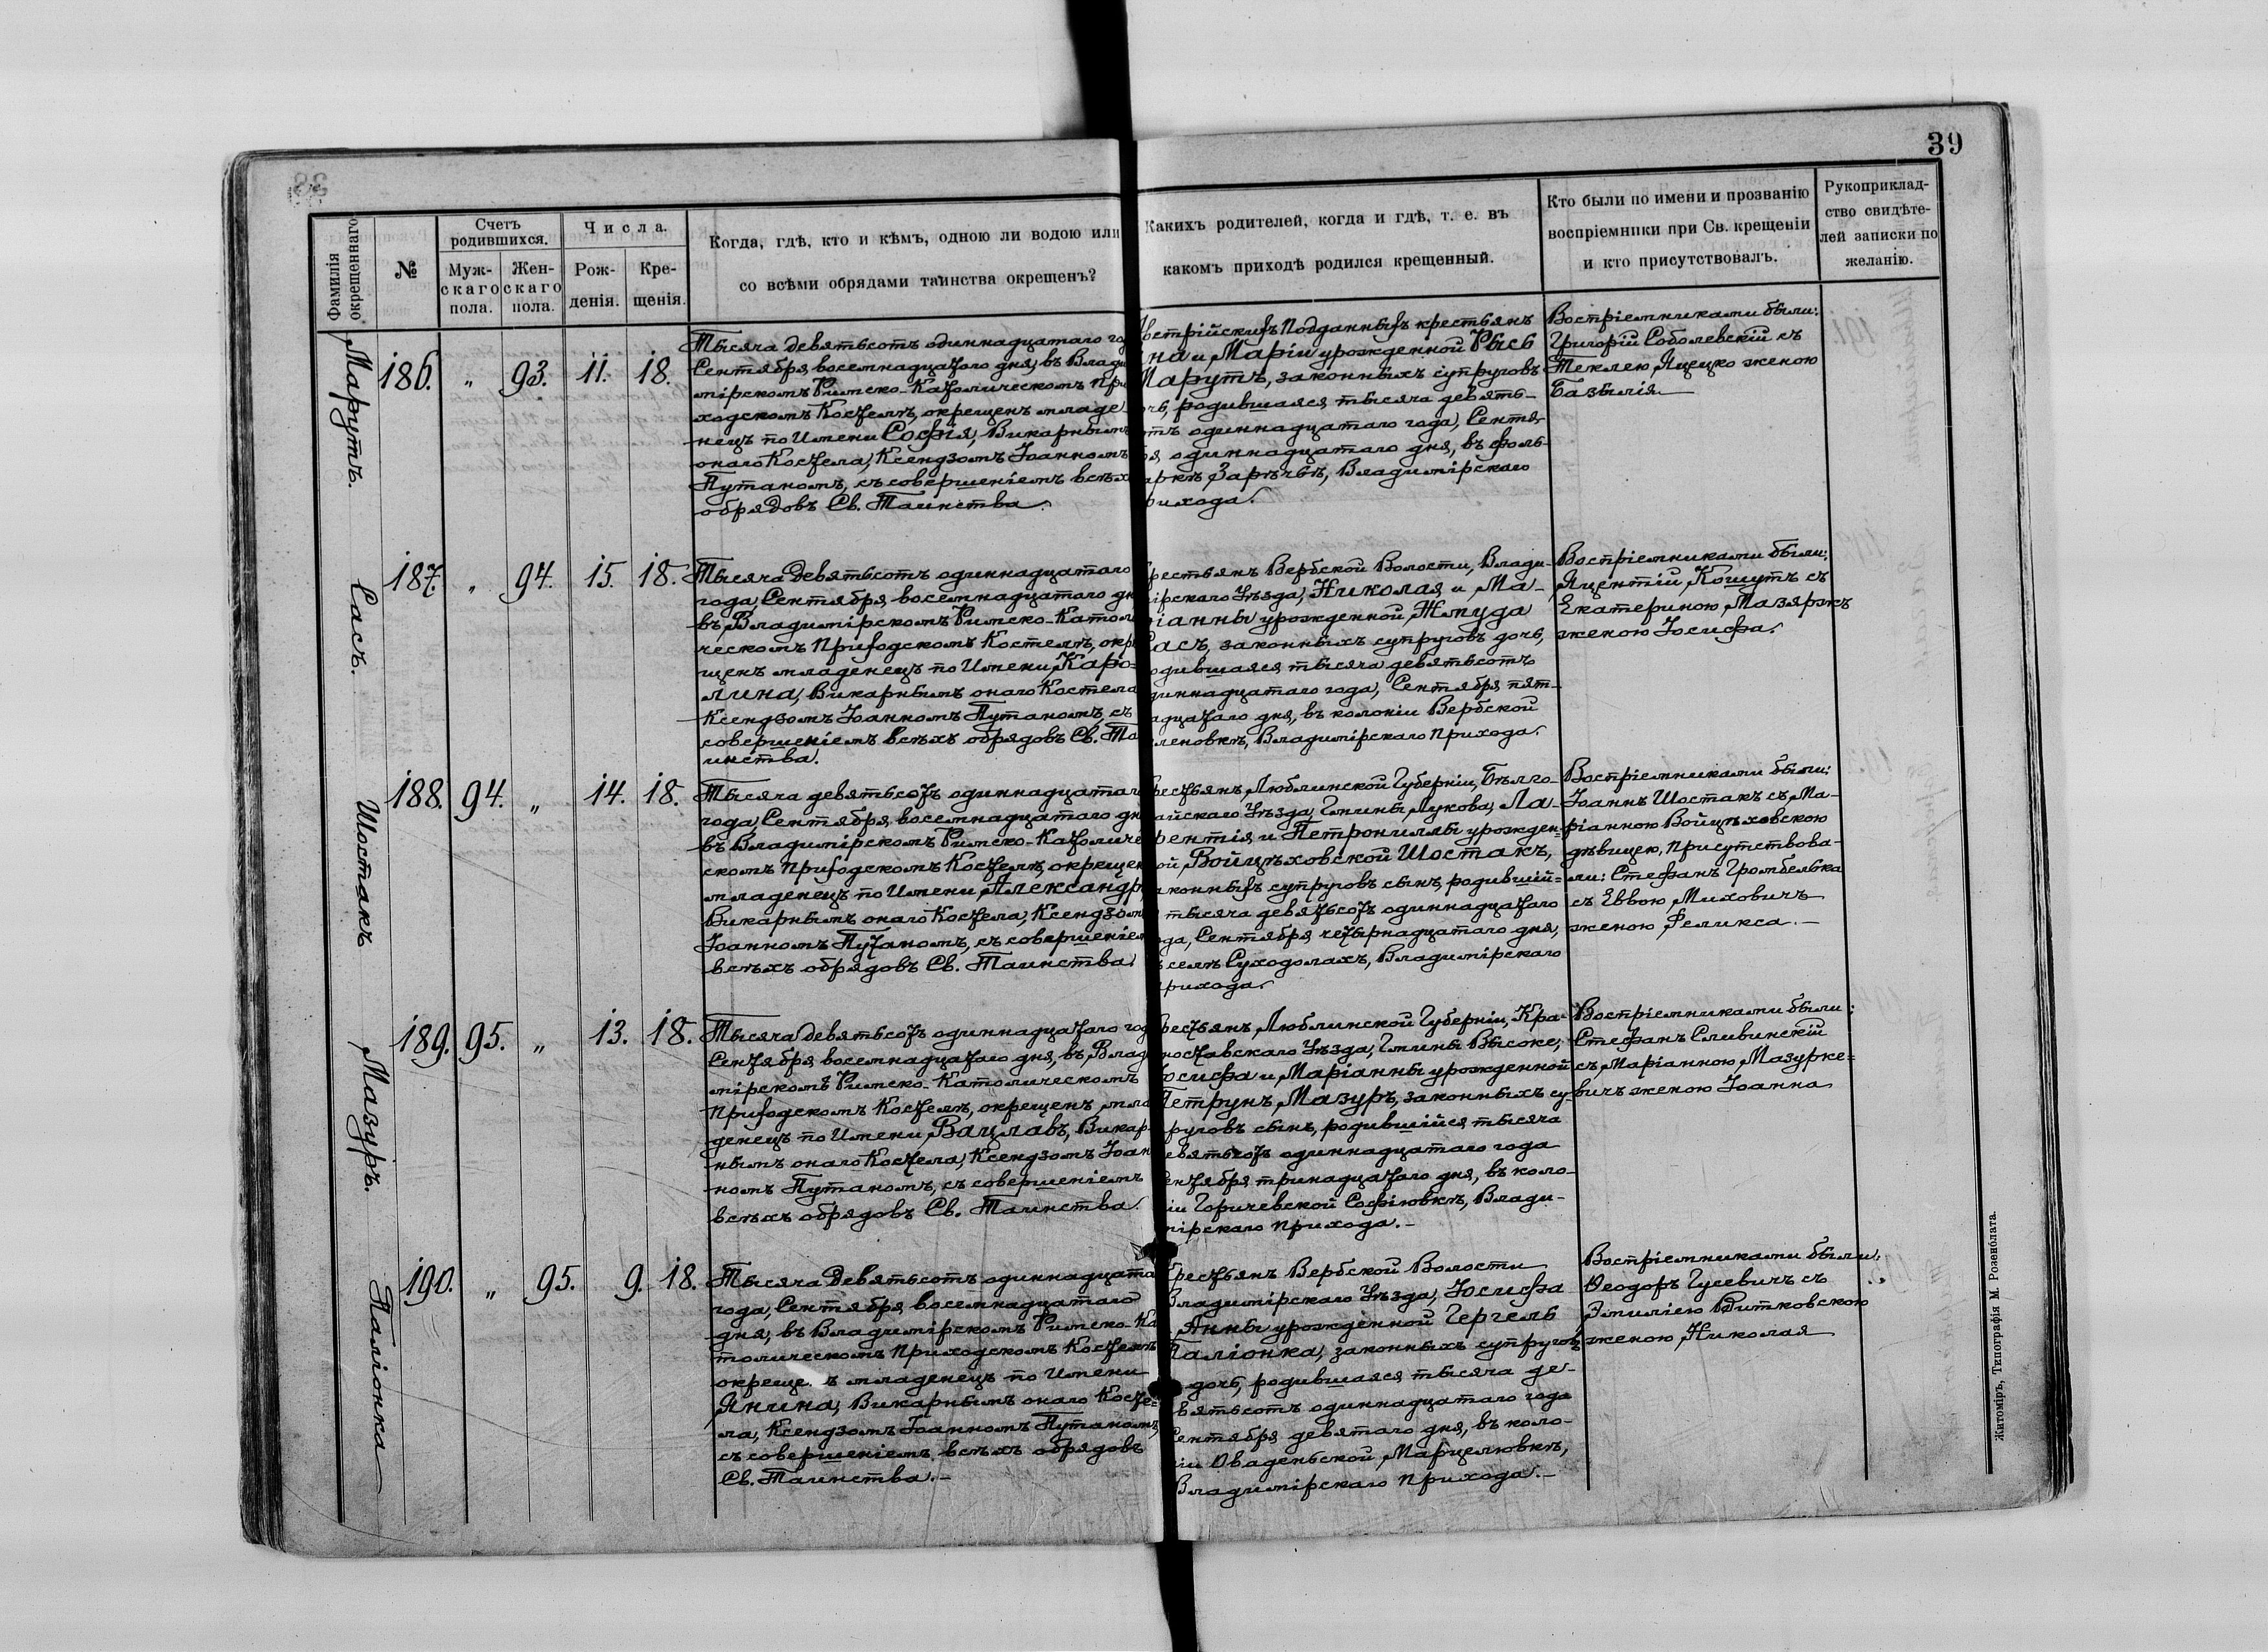 39
Фамилія окрещеннаго
№
Счетъ родившихся.
Мужскаго пола.
Женскаго пола.
Числа.
Рожденія.
Крещенія.
Когда, гдѣ, кто и кѣмъ, одною ли водою или
со всѣми обрядами таинства окрещенъ?
Какихъ родителей, когда и гдѣ, т. е. въ
какомъ приходѣ родился крещенный.
Кто были по имени и прозванію
воспріемники при Св. крещеніи
и кто присутствовалъ.
Рукоприклад-
ство свидѣте-
лей записки по
желанію.
Марутъ.
186. " 93. 11. 18.
Тысяча девятьсотъ одиннадцатаго го
Сентября восемнадцатаго дня, въ Влади
мірскомъ Римско-Католическомъ При
ходскомъ Костелѣ, окрещенъ младе
нецъ по Имени София, Викарнымъ
онаго Костела, Ксендзомъ Іоанномъ
Путаномъ, съ совершеніемъ всѣхъ
обрядовъ Св. Таинства.
встрійскихъ Подданныхъ крестьянъ
на и Маріи урожденной Рысь
Марутъ, законныхъ супруговъ
очь, родившаяся тысяча девять-
отъ одиннадцатаго года, Сентя-
ря одиннадцатаго дня, въ фоль-
аркѣ Зарѣчьѣ, Владимірскаго
рихода.
Воспріемниками были:
Григорій Соболевскій съ
Теклею Яцецко женою
Базылія
Сасъ.
187. " 94. 15. 18.
Тысяча Девятьсотъ одиннадцатаго
года, Сентября восемнадцатаго дн
въ Владимірскомъ Римско-Катол
ческомъ Приходскомъ Костелѣ, окре
щенъ младенецъ по Имени Каро=
лина, Викарнымъ онаго Костела
Ксендзомъ Іоанномъ Путаномъ, съ
совершеніемъ всѣхъ обрядовъ Св. Та
инства.
рестьянъ Вербской Волости, Влади-
мірскаго Уѣзда, Николая и Ма-
ріанны урожденной Жмуда
Сасъ, законныхъ супруговъ дочь,
одившаяся тысяча девятьсотъ
диннадцатаго года, Сентября пят-
адцатаго дня, въ колоніи Вербской
леновкѣ, Владимірскаго Прихода.
Воспріемниками были:
Яцентій Кошутъ съ
Екатериною Мазяржъ
женою Іосифа.
Шостакъ
188. 94. " 14. 18.
Тысяча девятьсотъ одиннадцатаг
года, Сентября восемнадцатаго дн
въ Владимірскомъ Римско-Католиче
скомъ Приходскомъ Костелѣ, окрещен
младенецъ по Имени Александр
Викарнымъ онаго Костела, Ксендзом
Іоанномъ Путаномъ, съ совершеніем
всѣхъ обрядовъ Св. Таинства.
рестьянъ Люблинской Губерніи, Бѣлго-
айскаго Уѣзда, Гмины Лукова, Ла-
рентія и Петрониллы урожден-
ой Войцѣховской Шостакъ,
аконныхъ супруговъ сынъ, родившій=
тысяча девятьсотъ одиннадцатаго
ода, Сентября четырнадцатаго дня,
селѣ Суходолахъ, Владимірскаго
рихода.
Воспріемниками были:
Іоаннъ Шостакъ съ Ма-
ріанною Войцѣховскою
дѣвицею, присутствова-
ли: Стефанъ Громбелька
съ Еввою Миховичъ
женою Феликса.-
Мазуръ.
189. 95. " 13. 18.
Тысяча девятьсотъ одиннадцатаго год
Сентября восемнадцатаго дня, въ Влад
мірскомъ Римско-Католическомъ
Приходскомъ Костелѣ, окрещенъ мла
денецъ по Имени Вацлавъ, Викар-
нымъ онаго Костела, Ксендзомъ Іоан
номъ Путаномъ, съ совершеніемъ
всѣхъ обрядовъ Св. Таинства.
рестьянъ Люблинской Губерніи, Кра-
ноставскаго Уѣзда, Гмины Высоке,
Іосифа и Маріанны урожденной
Петрунъ Мазуръ, законныхъ су-
руговъ сынъ, родившійся тысяча
евятьсотъ одиннадцатаго года
ентября тринадцатаго дня, въ коло-
іи Горичевской Софіювкѣ, Влади-
мірскаго Прихода.-
Воспріемниками были:
Стефанъ Сливинскій
съ Маріанною Мазурке=
вичъ женою Іоанна
Паліонка
190. " 95. 9. 18.
Тысяча Девятьсотъ одиннадцата
года, Сентября восемнадцатаго
дня, въ Владимірскомъ Римско-Ка
толическомъ Приходскомъ Костелѣ
окреще ъ младенецъ по Имени
Янина, Викарнымъ онаго Косте=
ла, Ксендзомъ Іоанномъ Путаномъ,
съ совершеніемъ всѣхъ обрядовъ
Св. Таинства.-
Крестьянъ Вербской Волости
Владимірскаго Уѣзда, Іосифа
Анны урожденной Гергель
Паліонка, законныхъ супруговъ
дочь, родившаяся тысяча де-
вятьсотъ одиннадцатаго года
Сентября девятаго дня, въ коло-
іи Оваденьской Марцелювкѣ,
Владимірскаго Прихода.-
Воспріемниками были:
Ѳеодоръ Гусевичъ съ
Эмиліею Витковскою
женою Николая
Житоміръ, Типографія М. Розенблата.